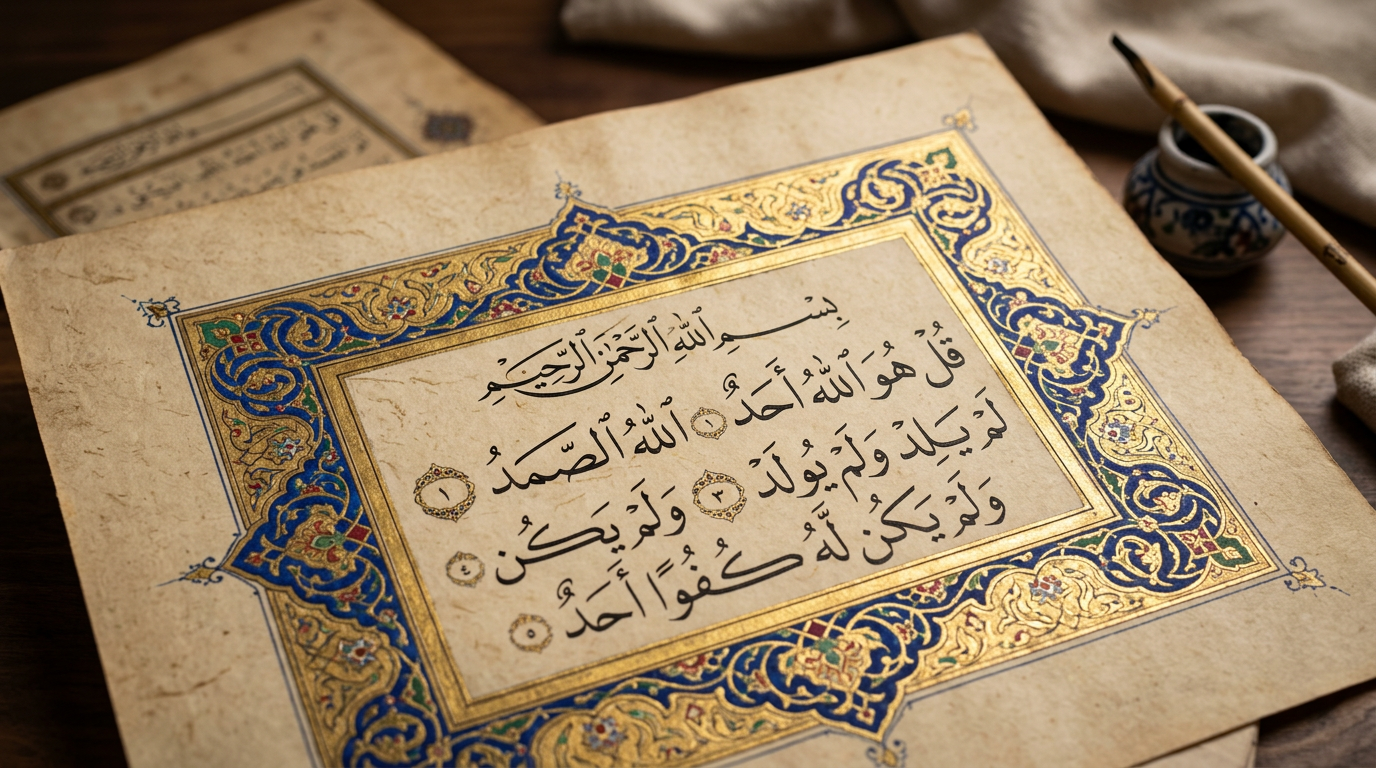 بِسْمِ ٱللَّهِ ٱلرَّحْمَٰنِ ٱلرَّحِيمِ
قُلْ هُوَ ٱللَّهُ أَحَدٌ ١ ٱللَّهُ ٱلصَّمَدُ ١
لَمْ يَلِدْ وَلَمْ يُولَدْ ٣ وَلَمْ يَكُن ٤
وَلَمْ يَكُن لَّهُ كُفُوًا أَحَدٌ ٥